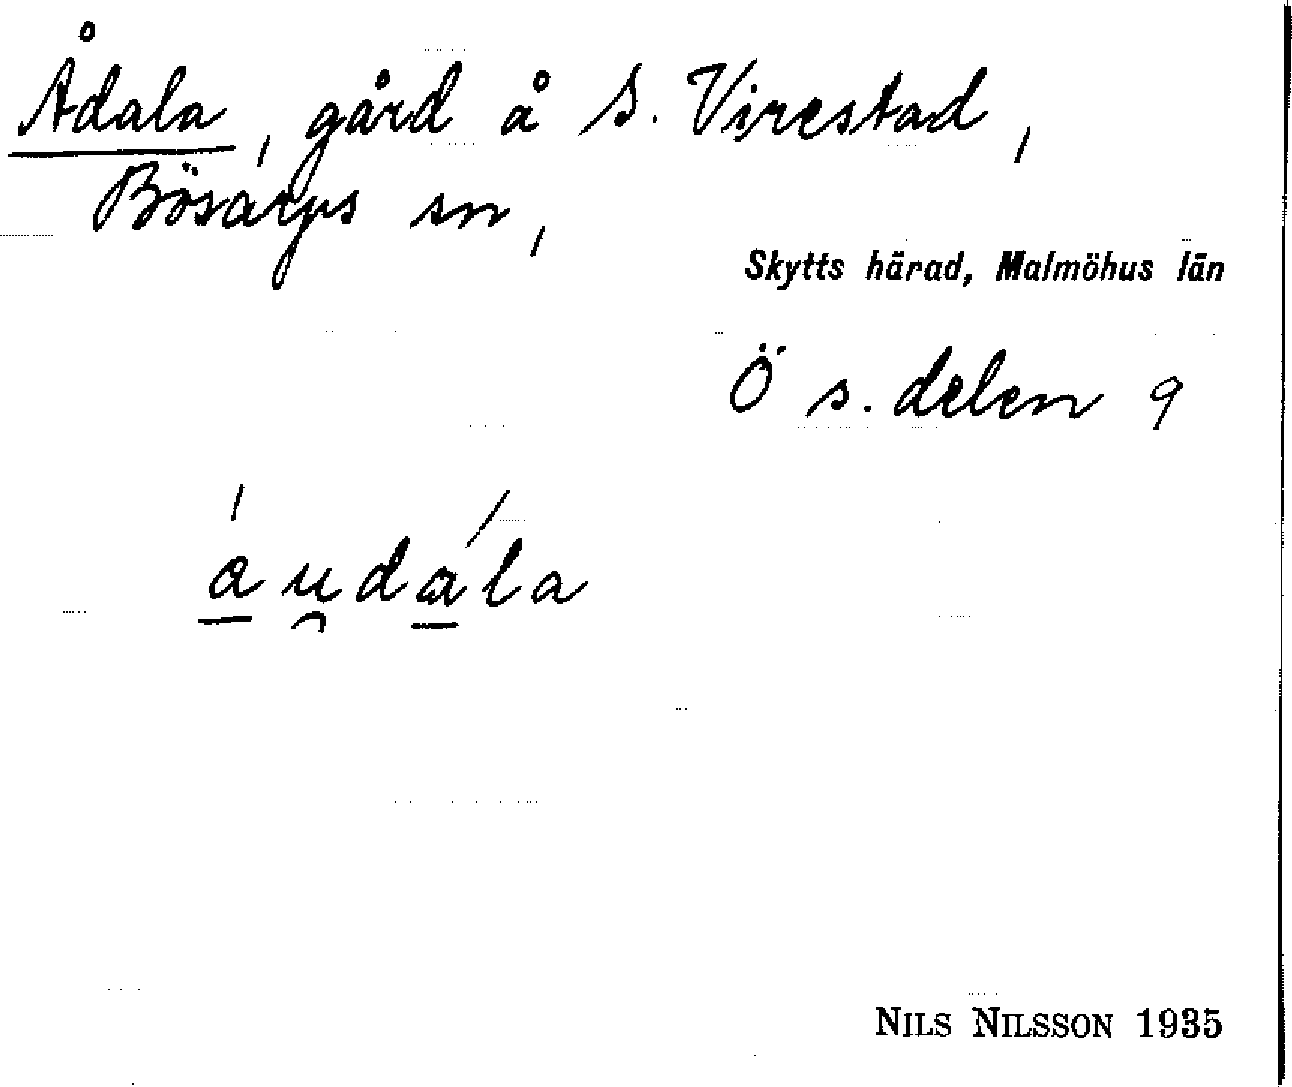 Ådala, gård å S. Virestad,
Bösarps sn,
Skytts härad, Malmöhus län
Ö s. delen 9
a̱u̯da̱la
NILS NILSSON 1935